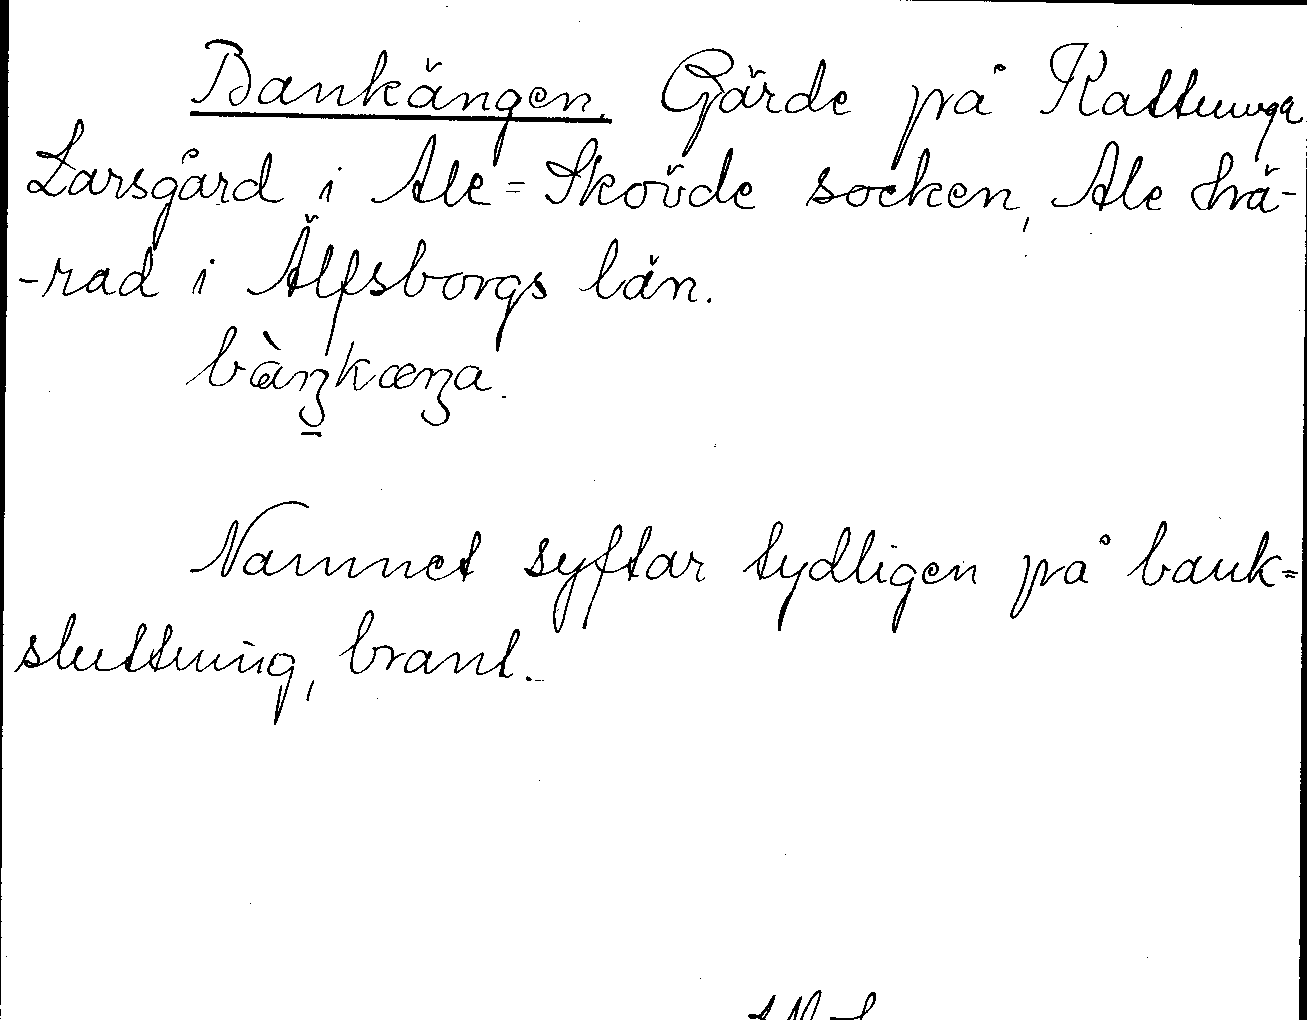 Bankängen. Gärde på Kattunga
Larsgård i Ale-Skövde socken, Ale hä-
-rad i Älfsborgs län.
bàŋkæŋa.
Namnet syftar tydligen på bank=
sluttning, brant.